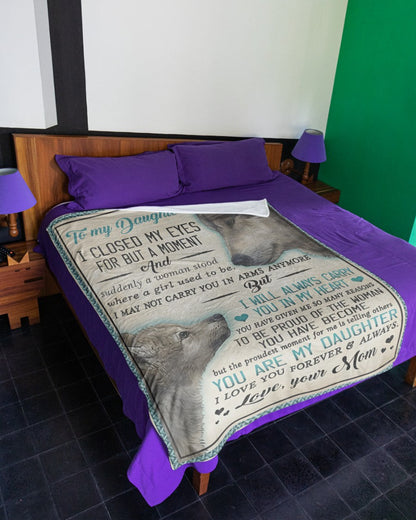 To my Daughter
I CLOSED MY EYES
FOR BUT A MOMENT
And
suddenly a woman stood
where a girl used to be.
I MAY NOT CARRY YOU IN ARMS ANYMORE
But
I WILL ALWAYS CARRY
YOU IN MY HEART
YOU HAVE GIVEN ME SO MANY REASONS
TO BE PROUD OF THE WOMAN
YOU HAVE BECOME
but the proudest moment for me is telling others
YOU ARE MY DAUGHTER
I LOVE YOU FOREVER & ALWAYS.
Love, your Mom